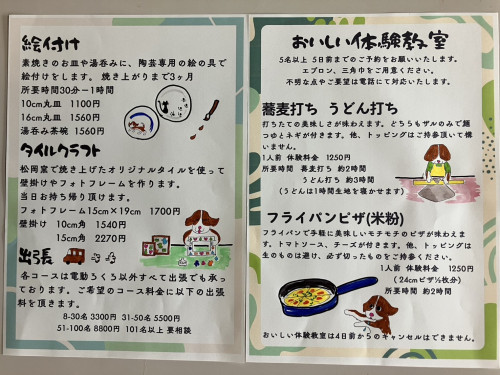 絵付け
素焼きのお皿や湯呑みに、陶芸専用の絵の具で
絵付けをします。 焼き上がりまで3ヶ月
所要時間30分ー1時間
10cm丸皿 1100円
16cm丸皿 1560円
湯呑み茶碗 1560円
タイルクラフト
松岡窯で焼き上げたオリジナルタイルを使って
壁掛けやフォトフレームを作ります。
当日お持ち帰り頂けます。
フォトフレーム15cm×19cm 1700円
壁掛け 10cm角 1540円
15cm角 2270円
出張
各コースは電動ろくろ以外すべて出張でも承っ
ております。ご希望のコース料金に以下の出張
料を頂きます。
8-30名 3300円 31-50名 5500円
51-100名 8800円 101名以上 要相談
おいしい体験教室
5名以上 5日前までのご予約をお願いいたします。
エプロン、三角巾をご用意ください。
不明な点やご要望は電話にて対応いたします。
蕎麦打ち うどん打ち
打ちたての美味しさが味わえます。どちらもザルのみで麺
つゆとネギが付きます。他、トッピングはご持参頂いて構
いません。
1人前 体験料金 1250円
所要時間 蕎麦打ち 約2時間
うどん打ち 約3時間
(うどんは1時間生地を寝かせます)
フライパンピザ(米粉)
フライパンで手軽に美味しいモチモチのピザが味わえま
す。トマトソース、チーズが付きます。他、トッピングは
生のものは避け、必ず切ったものをご持参ください。
1人前 体験料金 1250円
(24cmピザ½枚分)
所要時間 約2時間
おいしい体験教室は4日前からのキャンセルはできません。